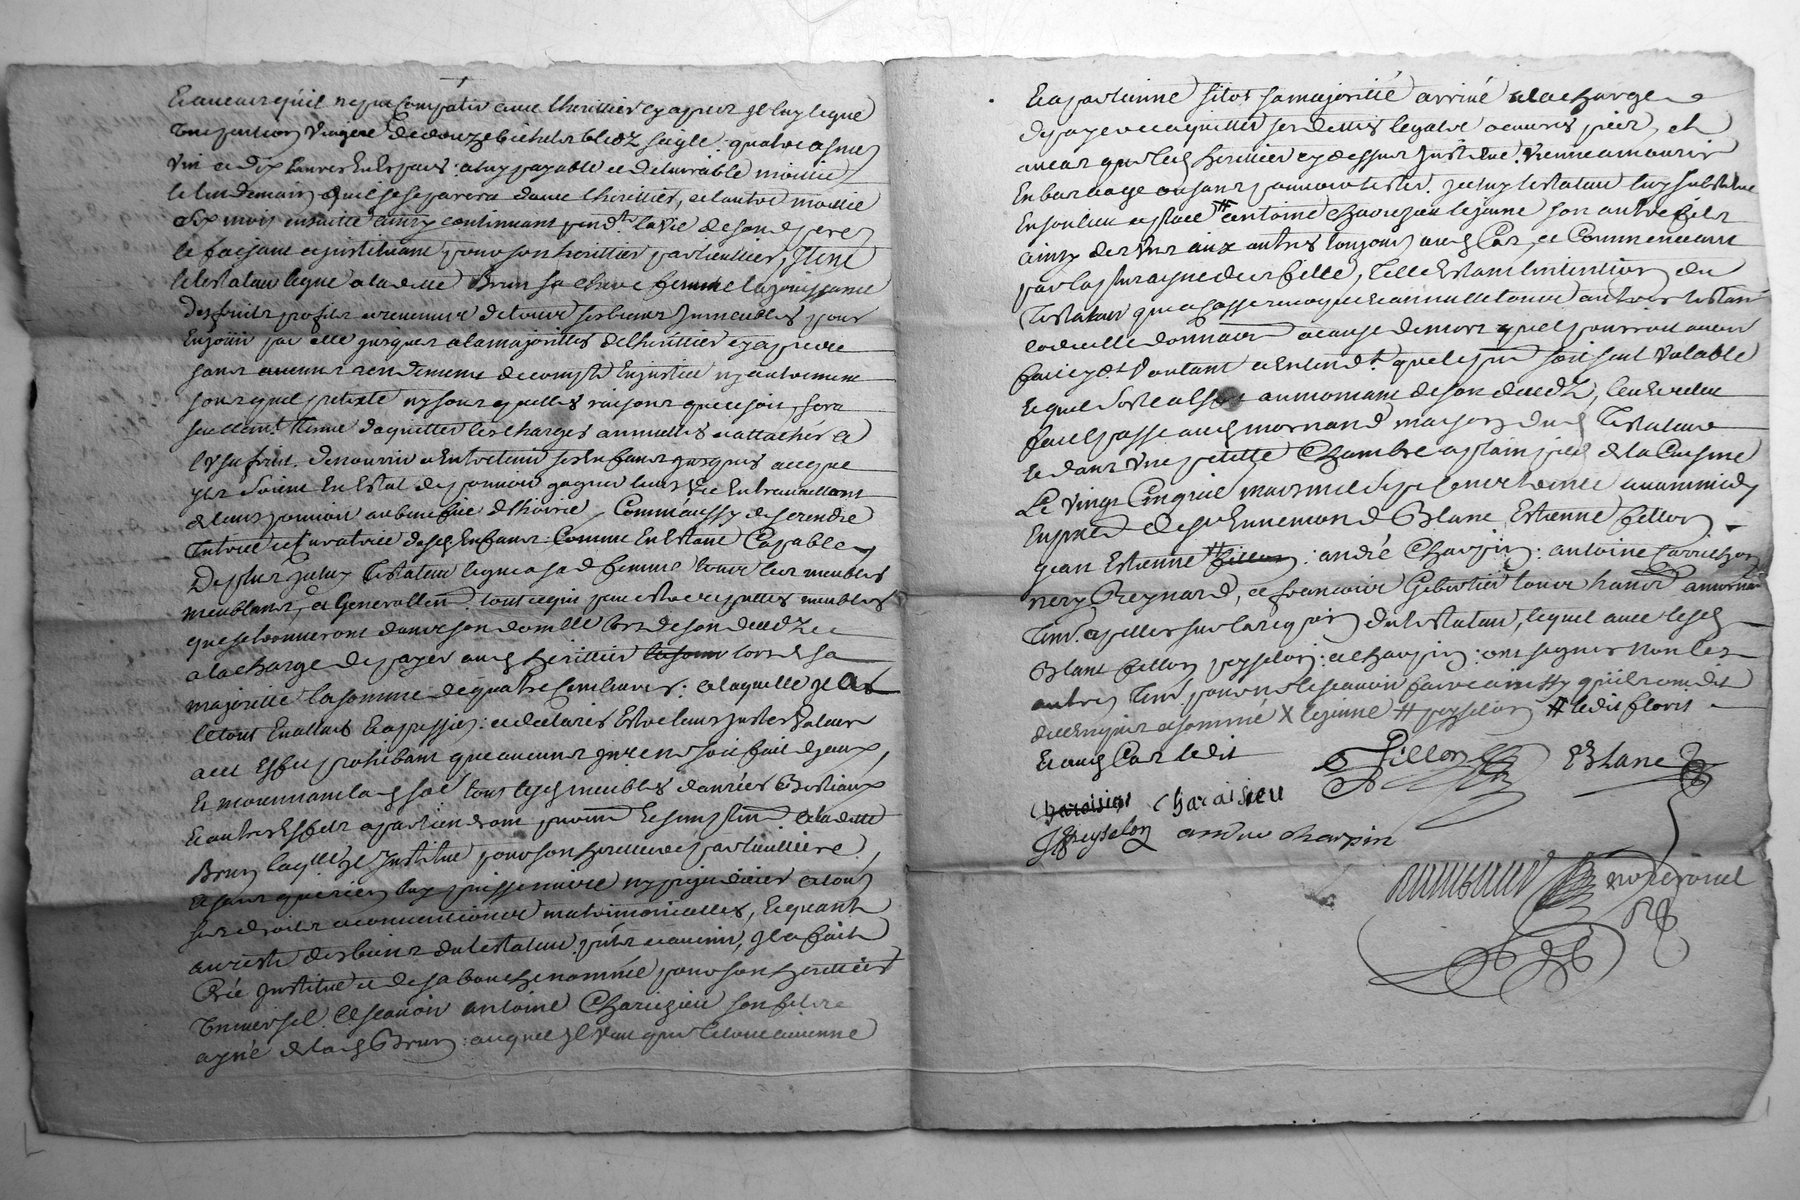 Et aucas qu'il ne peut Compatir avec Lheritiere cy apres Il luy legue
Une pention Viagere de douze bichets bled Seigle, quatre asnees
vin et dix Livres En Espece, a luy payable et delivrable moitié
le lendemain quil se separera davec Lheritiere, et lautre moitié
Six mois ensuitte ainsy continuant pend.t la vie de son d pere
le faisant et instituant pour son heritier particullier, Item
le testateur legue a ladite Brun sa chere femme la jouissance
Des fruits profits et revenus de tous ses biens Immeubles pour
En jouir par elle jusques a la majorittés de lheritier cy apres
sans aucuns rendement de compte En justice ny autrement
sous quel pretexte ny sous quelles raisons que ce soit, sera
seullem.t tenue daquitter les charges annuelles et attachés a
lusufruit, de nourrir et Entretenir ses Enfans jusques ace que
yls Soient En Estat de pouvoir gagner leurs vie En travaillant
de leurs pouvoir au benefice dhoirie, Comme aussy de se rendre
Tutrice et Curatrice desd Enfans Comme En Estant Capable
De plus Iceluy Testateur legue a sa d femme tous les meubles
meublants, et Generallem.t tout ce qui peut estre reputtes meubles
qui se trouveront dans son domicille lors de son decedz
a la charge de payer aud heritier lors d sa
majorité la somme de quatre Cent livres, a laquelle Il a
le tout Evallué Et apressié, et declarés Estre leurs justes valeur
a cet Effet prohibant que aucuns Inv.re ne soit fait diceux,
Et moyennant lad so.e tous lesd meubles danrées Bestiaux
Et autres Effets apartiendront a ladite
Brun laq.lle Il Institue pour son heritiere particulliere,
Et sans que rien luy puisse nuire ny prejudicier a tous
ses droits et conventions matrimonialles, Et quant
au reste des biens du testateur p.nts et avenir, Il a fait
Créé Institué et de sa bouche nommé pour son heritier
Universel, Asçavoir antoine Charezieu son fils
ayné de lad Brun, auquel Il veut que le tout avienne
Et apartienne sitot sa majorité arrivé a la charge
de payer et aquitter ses dettes legats et œuvres pies, et
aucas que led heritier cy dessus Institué Vienne a mourir
En bas aage ou sans pouvoir tester, Iceluy testateur luy substitue
En son lieu et place # antoine Charezieu le jeune son autre fils
ainsy des uns aux autres toujours aud Cas, et Commenceant
par la plus aynée des filles, Telle Estant lintention du
Testateur qui a Casse revoque et annulle tous autres testam.t
codicille donnation a cause de mort quil pourroit avoir
fait cy d.t Voulant et Entend.t que le p.nt soit seul Valable
Et quil sorte a Effet au moment de son decedz, leu et releu
fait et passé aud mornand maison dud Testateur
Et dans une petitte Chambre aplain pied de la Cuisine
Le Vingt Cinquie may mil sept Cent trente avant midy
En p.nce de s.r Ennemond Blanc, Estienne fillon
jean Estienne # : andré Charpin, antoine
nery Reynard, et françois tous hants a mornand
Tem.s apellés sur la req.on du testateur, lequel avec lesd
Blanc fillon peyselon et Charpin ont signes non les
autres Tem.s pour ne le sçavoir faire ainsy quils ont dit
de ce Enquis et sommé X le jeune # peyselon # ledit
Et aud Cas ledit
Fillon EBlanc
Charaisieu
Jpeyselon andre charpin
no.re royal